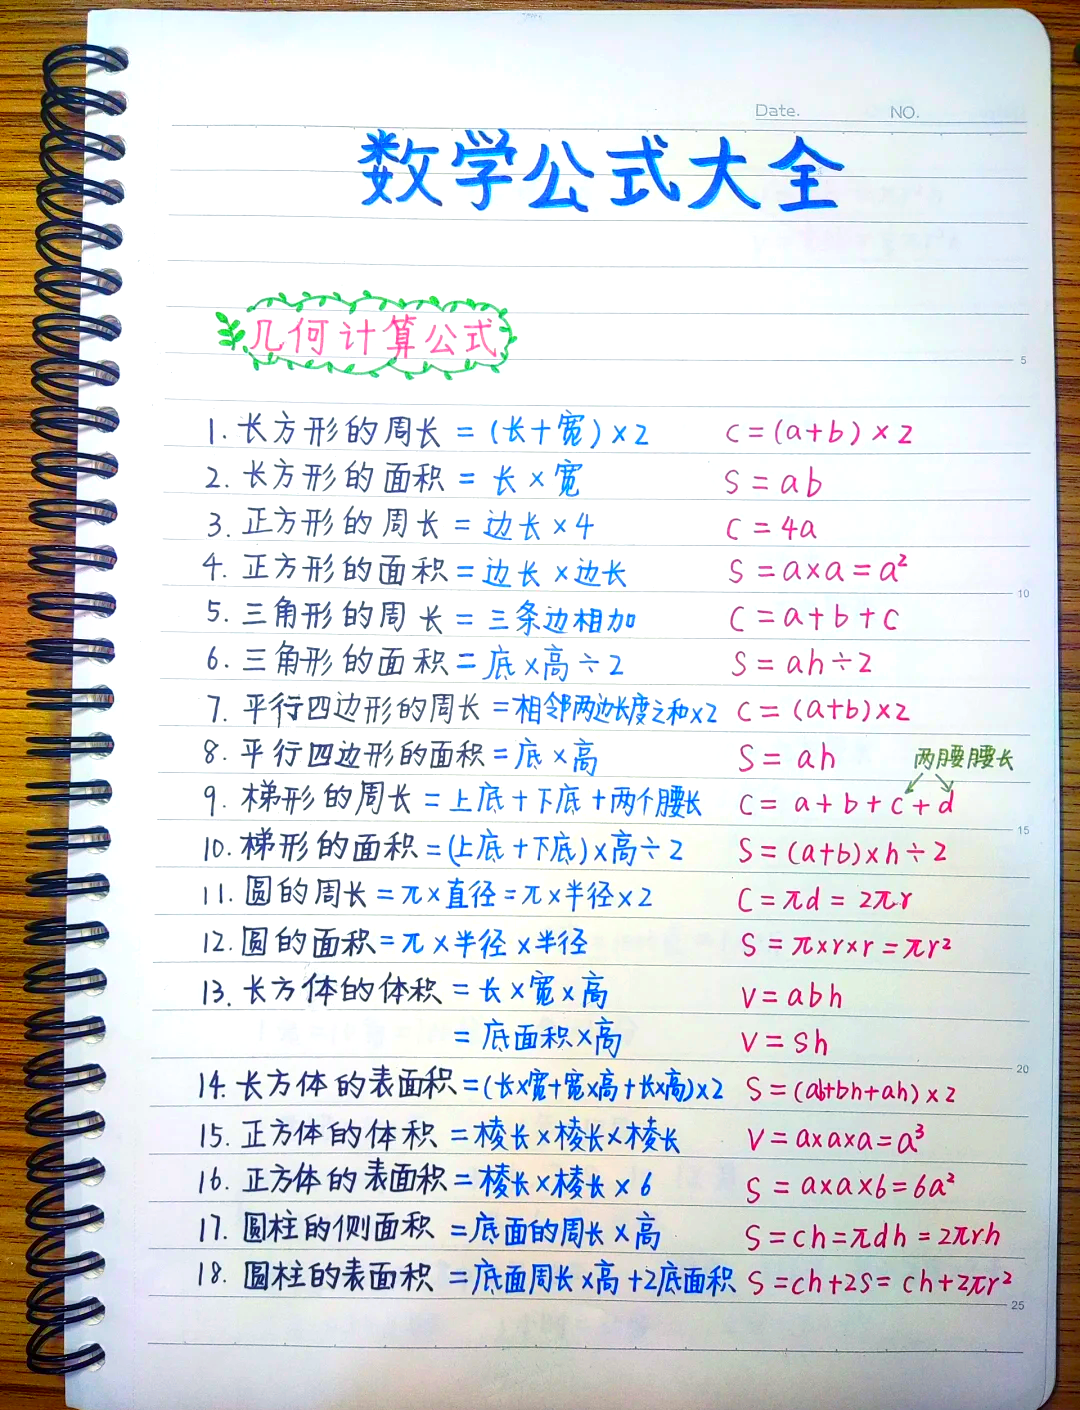 Date. NO.
数学公式大全
几何计算公式
5
1. 长方形的周长 = (长+宽)×2 C=(a+b)×2
2. 长方形的面积 = 长×宽 S=ab
3. 正方形的周长 = 边长×4 C=4a
4. 正方形的面积=边长×边长 S=a×a=a²
10
5. 三角形的周长 = 三条边相加 C=a+b+c
6. 三角形的面积=底×高÷2 S=ah÷2
7. 平行四边形的周长=相邻两边长度之和×2 C=(a+b)×2
8. 平行四边形的面积=底×高 S=ah 两腰腰长
9. 梯形的周长=上底+下底+两个腰长 C=a+b+c+d
15
10. 梯形的面积=(上底+下底)×高÷2 S=(a+b)×h÷2
11. 圆的周长=π×直径=π×半径×2 C=πd=2πr
12. 圆的面积=π×半径×半径 S=π×r×r=πr²
13. 长方体的体积=长×宽×高 V=abh
=底面积×高 V=Sh
20
14. 长方体的表面积=(长×宽+宽×高+长×高)×2 S=(ab+bh+ah)×2
15. 正方体的体积=棱长×棱长×棱长 V=a×a×a=a³
16. 正方体的表面积=棱长×棱长×6 S=a×a×6=6a²
17. 圆柱的侧面积=底面的周长×高 S=ch=πdh=2πrh
18. 圆柱的表面积=底面周长×高+2底面积 S=ch+2S=ch+2πr²
25